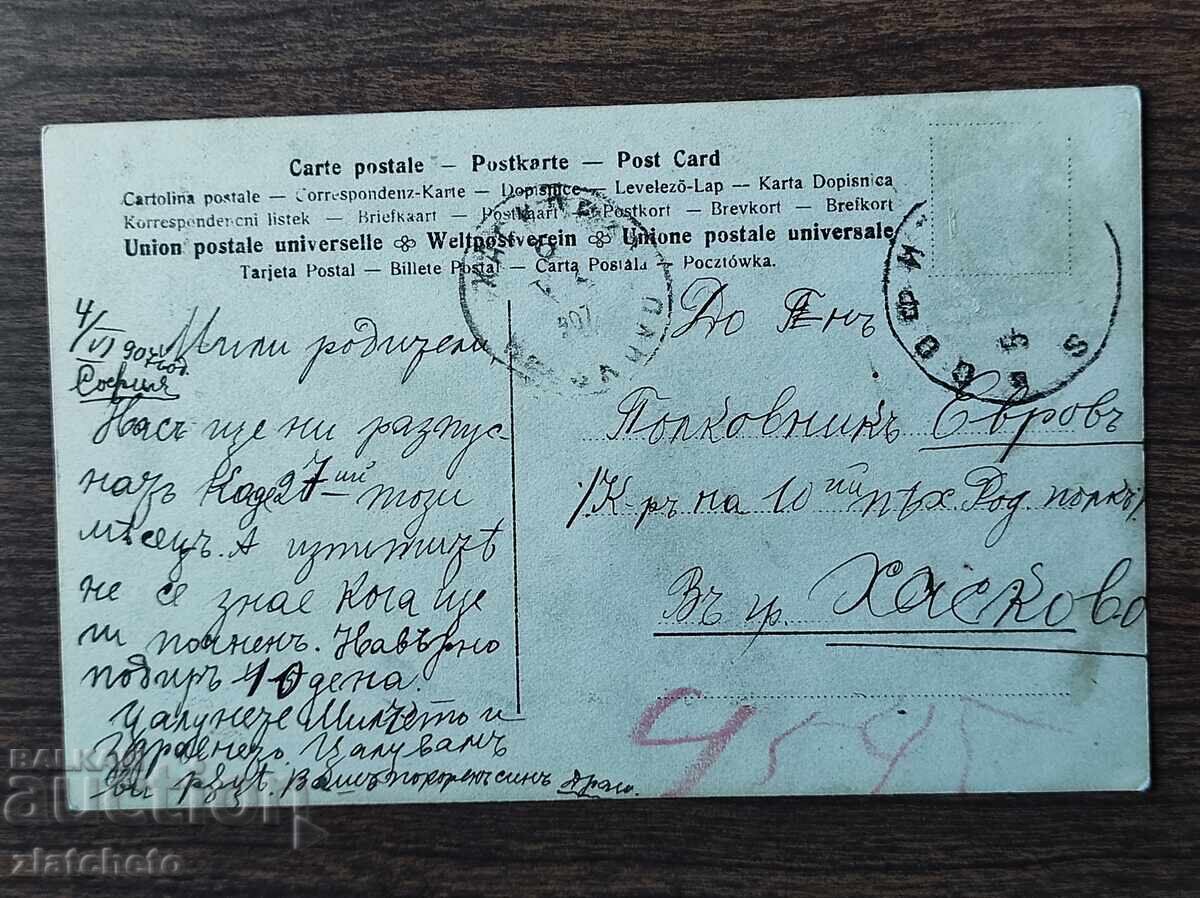 Carte postale — Postkarte — Post Card
Cartolina postale — Correspondenz-Karte — Dopisnice — Levelező-Lap — Karta Dopisnica
Korrespondencni listek — Briefkaart — Postkaart — Postkort — Brevkort — Brefkort
Union postale universelle Weltpostverein Unione postale universale
Tarjeta Postal — Billete Postal — Carta Postala — Pocztówka.
4/VI 907 год.
София
Мили родители
Насъ ще ни разпус-
натъ каде 27-ий този
мѣсецъ. А изпититѣ
не се знае кога ще
ги почнемъ. Навѣрно
подиръ 10 дена.
Цалунете Милчето и
Цалувамъ
Ви рѫцѣ. Вашъ покоренъ синъ Драго.
До Г-нъ
Полковникъ Евровъ
/К-ръ на 10ий пѣх. Род. полкъ/
Въ гр. Хасково
907
5
S
9595
BALKAN
auction
zlatcheto